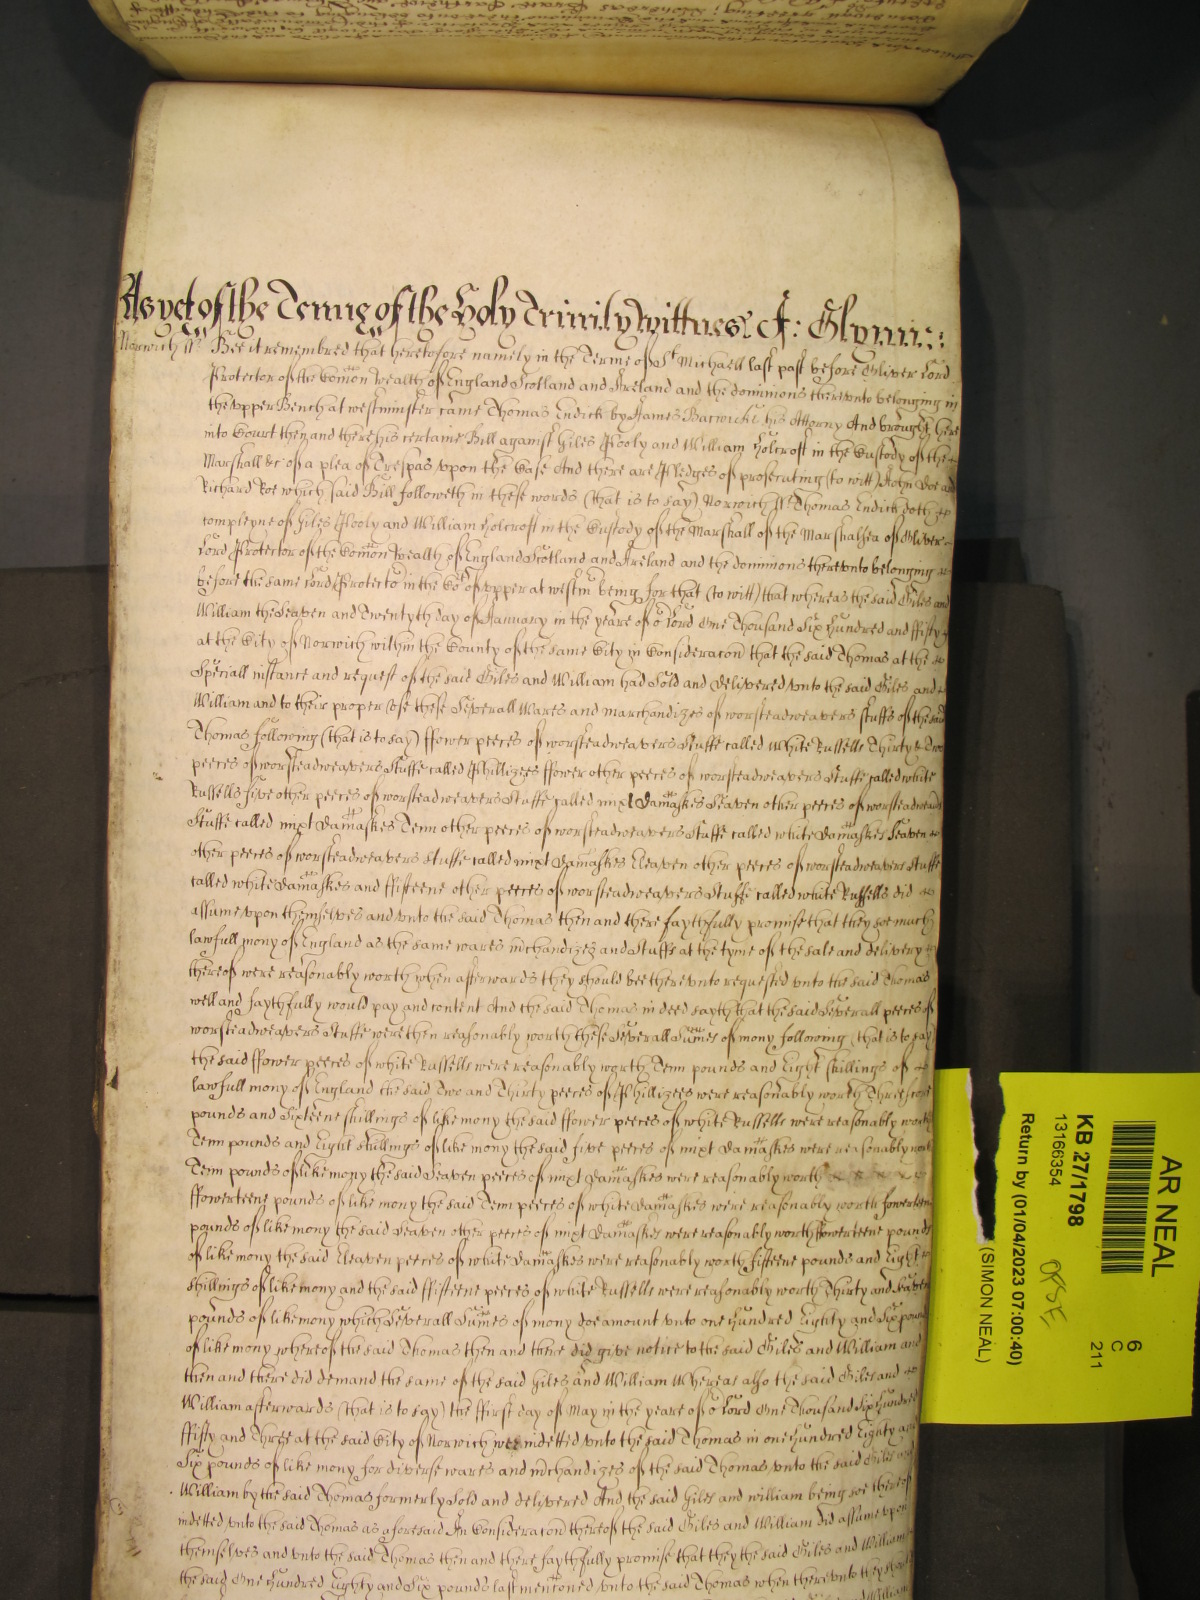 As yet of the Terme of the Holy Trinity Wittnes J: Glynn:
Norwich ss. Bee it remembred that heretofore namely in the Terme of St Michaell last past before Oliver Lord
Protector of the Comon Wealth of England Scotland and Ireland and the dominions therevnto belonging in
the vpper Bench at westminster came Thomas Endick by James Barwicke his Attorny And brought here
into Court then and there his certaine Bill against Giles Pooly and William Holcroft in the Custody of the
Marshall &c of a plea of Trespas vpon the Case And there are Pledges of prosecuting (to witt) John Doe and
Richard Roe which said Bill followeth in these words (that is to say) Norwich ss. Thomas Endick doth
compleyne of Giles Pooly and William Holcroft in the Custody of the Marshall of the Marshalsea of Oliver
Lord Protector of the Comon Wealth of England Scotland and Ireland and the dominions therevnto belonging
before the same Lord Protector in the Cot of vpper at westm being for that (to witt) that whereas the said Giles and
William the Seaven and Twentyth day of January in the yeare of or Lord One Thousand Six Hundred and ffifty
at the City of Norwich within the County of the same City in Consideracon that the said Thomas at the
Speciall instance and request of the said Giles and William had Sold and delivered vnto the said Giles and
William and to their proper vse these Severall Wares and marchandizes of worsteadweavers stuffs of the said
Thomas following (that is to say) ffower peeces of worsteadweavers Stuffe called White Russells Thirty & Two
peeces of worsteadweavers Stuffe called Phillizees ffower other peeces of worsteadweavers Stuffe called white
Russells five other peeces of worsteadweavers Stuffe called mixt Damaskes Seaven other peeces of worsteadweavers
Stuffe called mixt Damaskes Tenn other peeces of worsteadweavers Stuffe called white Damaskes Seaven
other peeces of worsteadweavers Stuffe called mixt Damaskes Eleaven other peeces of worsteadweavers Stuffe
called white Damaskes and ffifteene other peeces of worsteadweavers Stuffe called white Russells did
assume vpon themselves and vnto the said Thomas then and there faythfully promise that they soe much
lawfull mony of England as the same wares mchandizes and Stuffs at the tyme of the sale and delivery
thereof were reasonably worth when afterwards they should bee therevnto requested vnto the said Thomas
well and faythfully would pay and content And the said Thomas in deed sayth that the said Severall peeces of
worsteadweavers Stuffe were then reasonably worth these Severall Sumes of mony following (that is to say)
the said ffower peeces of white Russells were reasonably worth Tenn pounds and Eight shillings of
lawfull mony of England the said Two and Thirty peeces of Phillizees were reasonably worth Threescore
pounds and Sixteene shillings of like mony the said ffower peeces of white Russells were reasonably worth
Tenn pounds and Eight shillings of like mony the said five peeces of mixt Damaskes were reasonably worth
Tenn pounds of like mony the said Seaven peeces of mixt Damaskes were reasonably worth
ffowerteene pounds of like mony the said Tenn peeces of white Damaskes were reasonably worth fowerteen
pounds of like mony the said Seaven other peeces of mixt Damaskes were reasonably worth ffowerteene pounds
of like mony the said Eleaven peeces of white Damaskes were reasonably worth fifteene pounds and Eight
shillings of like mony and the said ffifteene peeces of white Russells were reasonably worth Thirty and Seaven
pounds of like mony which Severall Sumes of mony doe amount vnto one Hundred Eighty and Six pounds
of like mony whereof the said Thomas then and there did give notice to the said Giles and William and
then and there did demand the same of the said Giles and William Whereas also the said Giles and
William afterwards (that is to say) the ffirst day of May in the yeare of or Lord One Thousand Six Hundred
ffifty and Three at the said City of Norwich indetted vnto the said Thomas in one Hundred Eighty and
Six pounds of like mony for diverse wares and mchandizes of the said Thomas vnto the said Giles and
William by the said Thomas formerly Sold and delivered And the said Giles and william being soe thereof
indetted vnto the said Thomas as aforesaid In Consideracon thereof the said Giles and William did assume vpon
themselves and vnto the said Thomas then and there faythfully promise that they the said Giles and William
the said One Hundred Eighty and Six pounds last mentoned vnto the said Thomas when therevnto they should
AR NEAL
6
C
211
KB 27/1798
13166354
Return by (01/04/2023 07:00:40)
(SIMON NEAL)